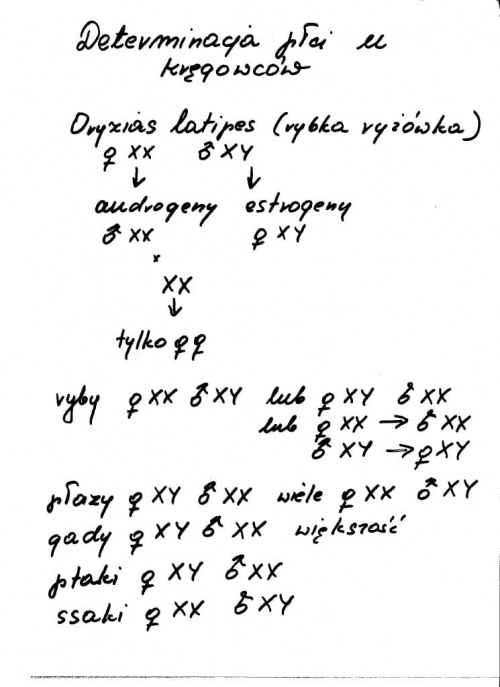 Determinacja płci u
kręgowców
Oryxias latipes (rybka ryżówka)
♀ XX ♂ XY
↓ ↓
androgeny estrogeny
♂ XX ♀ XY
x
XX
↓
tylko ♀♀
ryby ♀ XX ♂ XY lub ♀ XY ♂ XX
lub ♀ XX → ♂ XX
♂ XY → ♀ XY
płazy ♀ XY ♂ XX wiele ♀ XX ♂ XY
gady ♀ XY ♂ XX większość
ptaki ♀ XY ♂ XX
ssaki ♀ XX ♂ XY